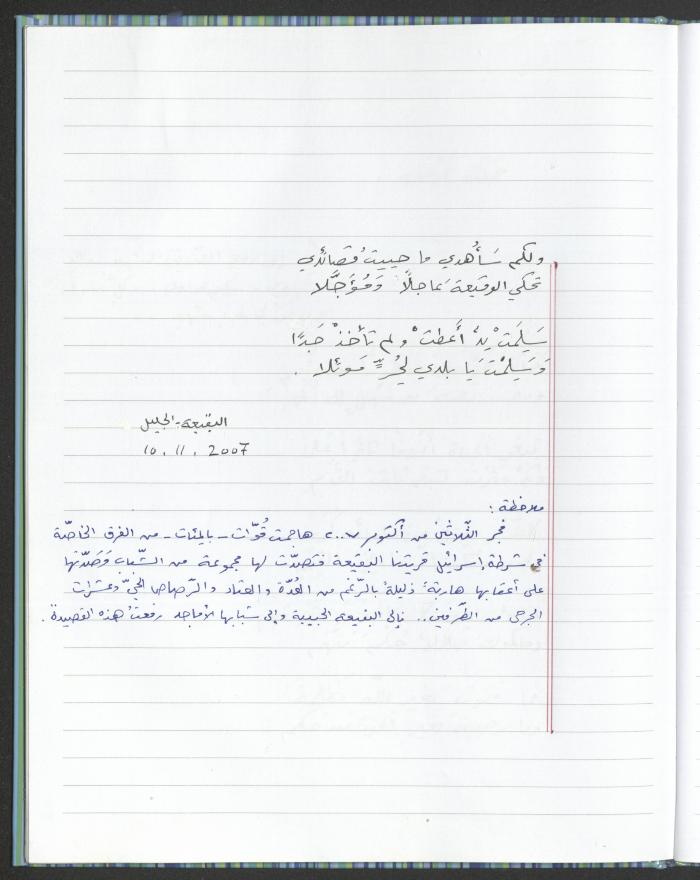 ولكم سَأُهدي ما حييتُ قصائدي
تحكي الوقيعةَ عاجلاً وَمُؤَجَّلا
سَلِمَتْ يدٌ أَعطتْ ولم تأخذْ جَدًا
وَسَلِمْتَ يا بلدي لِحُرٍّ مَوئلا .
البقيعة - الجليل
10. 11. 2007
ملاحظة :
فجر الثّلاثين من أكتوبر ٢٠٠٧ هاجمت قُوّات - بالمئات - من الفرق الخاصّة
في شرطة إسرائيل قريتنا البقيعة فتصدّت لها مجموعة من الشّباب وَصَدّتها
على أعقابها هاربةً ذليلةً بالرّغم من العُدّة والعتاد والرّصاص الحيّ وعشرات
الجرحى من الطّرفين .. فإلى البقيعة الحبيبة وإلى شبابها الأماجد رفعتُ هذه القصيدة .